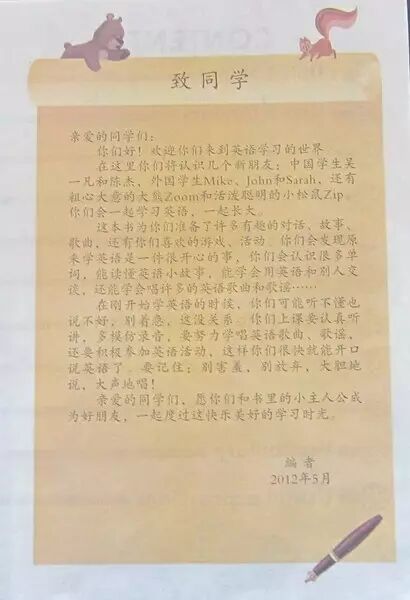 致同学
亲爱的同学们：
你们好！欢迎你们来到英语学习的世界。
在这里你们将认识几个新朋友：中国学生吴
一凡和陈杰、外国学生Mike、John和Sarah，还有
粗心大意的大熊Zoom和活泼聪明的小松鼠Zip。
你们会一起学习英语，一起长大。
这本书为你们准备了许多有趣的对话、故事、
歌曲，还有你们喜欢的游戏、活动。你们会发现原
来学英语是一件很开心的事，你们会认识很多单
词，能读懂英语小故事，能学会用英语和别人交
谈，还能学会唱许多的英语歌曲和歌谣……
在刚开始学英语的时候，你们可能听不懂也
说不好，别着急，这没关系。你们上课要认真听
讲，多模仿录音，要努力学唱英语歌曲、歌谣，
还要积极参加英语活动，这样你们很快就能开口
说英语了。要记住：别害羞，别放弃，大胆地
说，大声地唱！
亲爱的同学们，愿你们和书里的小主人公成
为好朋友，一起度过这快乐美好的学习时光。
编者
2012年5月